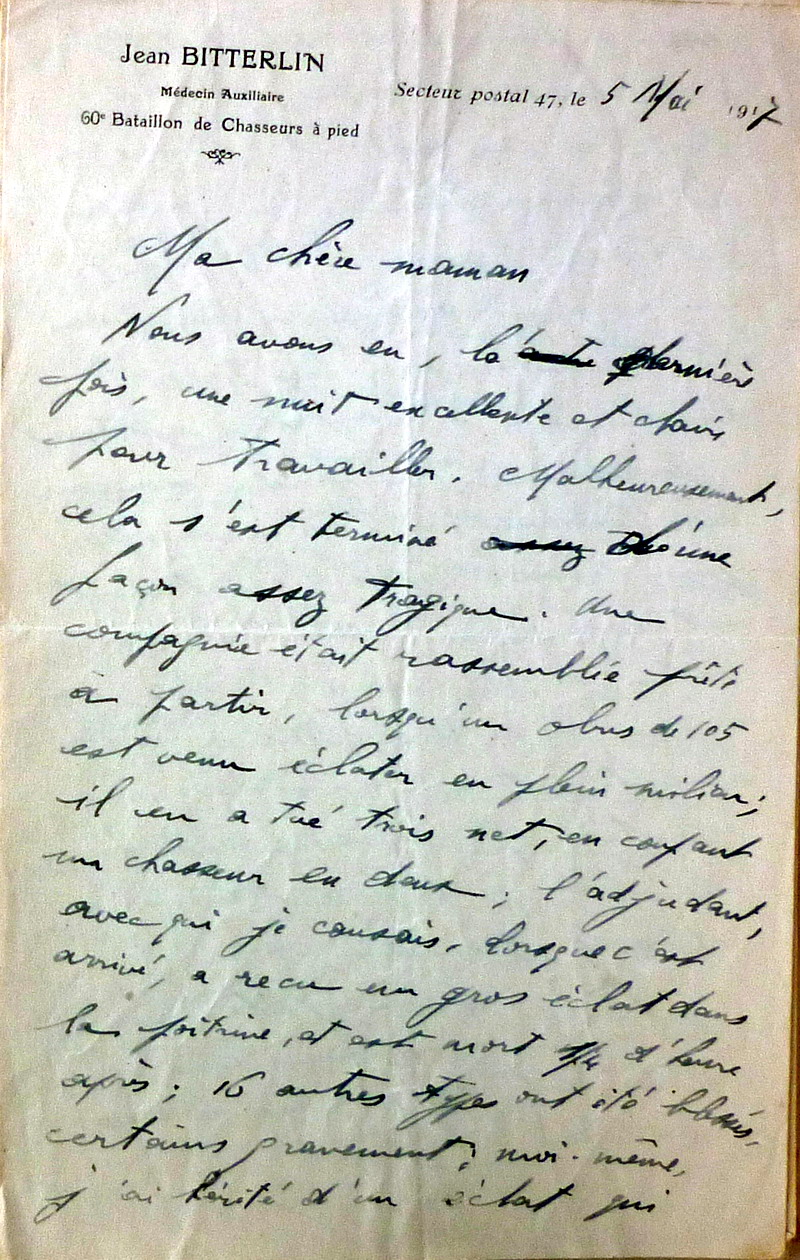 Jean BITTERLIN
Médecin Auxiliaire
60e Bataillon de Chasseurs à pied
Secteur postal 47, le 5 Mai 1917
Ma chère maman
Nous avons eu, la dernière
fois, une nuit excellente et claire
pour travailler. Malheureusement,
cela s'est terminé d'une
façon assez tragique. Une
compagnie était rassemblée prête
à partir, lorsqu'un obus de 105
est venu éclater en plein milieu ;
il en a tué trois net, en coupant
un chasseur en deux ; l'adjudant,
avec qui je causais, lorsque c'est
arrivé, a recu un gros éclat dans
la poitrine, et est mort 1/4 d'heure
après ; 16 autres types ont été blessés,
certains gravement ; moi-même,
j'ai hérité d'un éclat qui